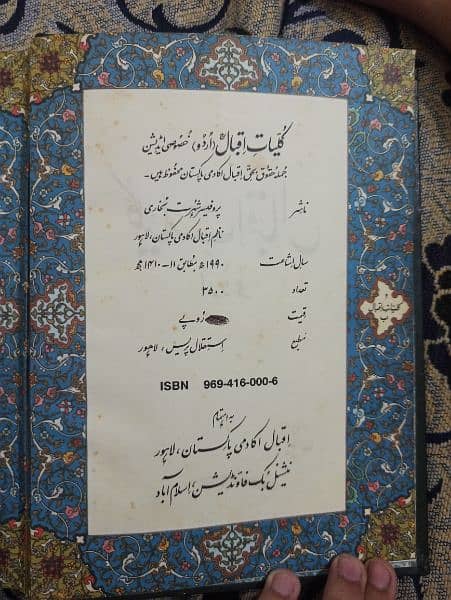 کلیاتِ اقبالؒ (اُردو) خصوصی ایڈیشن
جملہ حقوق بحق اقبال اکادمی پاکستان محفوظ ہیں۔
ناشر پروفیسر شہرت بخاری
ناظم اقبال اکادمی پاکستان، لاہور
سالِ اشاعت ۱۹۹۰ء بمطابق ۱۱-۱۴۱۰ھ
تعداد ۳۵۰۰
قیمت روپے
مطبع استقلال پریس، لاہور
ISBN 969-416-000-6
بہ اہتمام
اقبال اکادمی پاکستان، لاہور
نیشنل بک فاؤنڈیشن، اسلام آباد
کلیاتِ اقبال